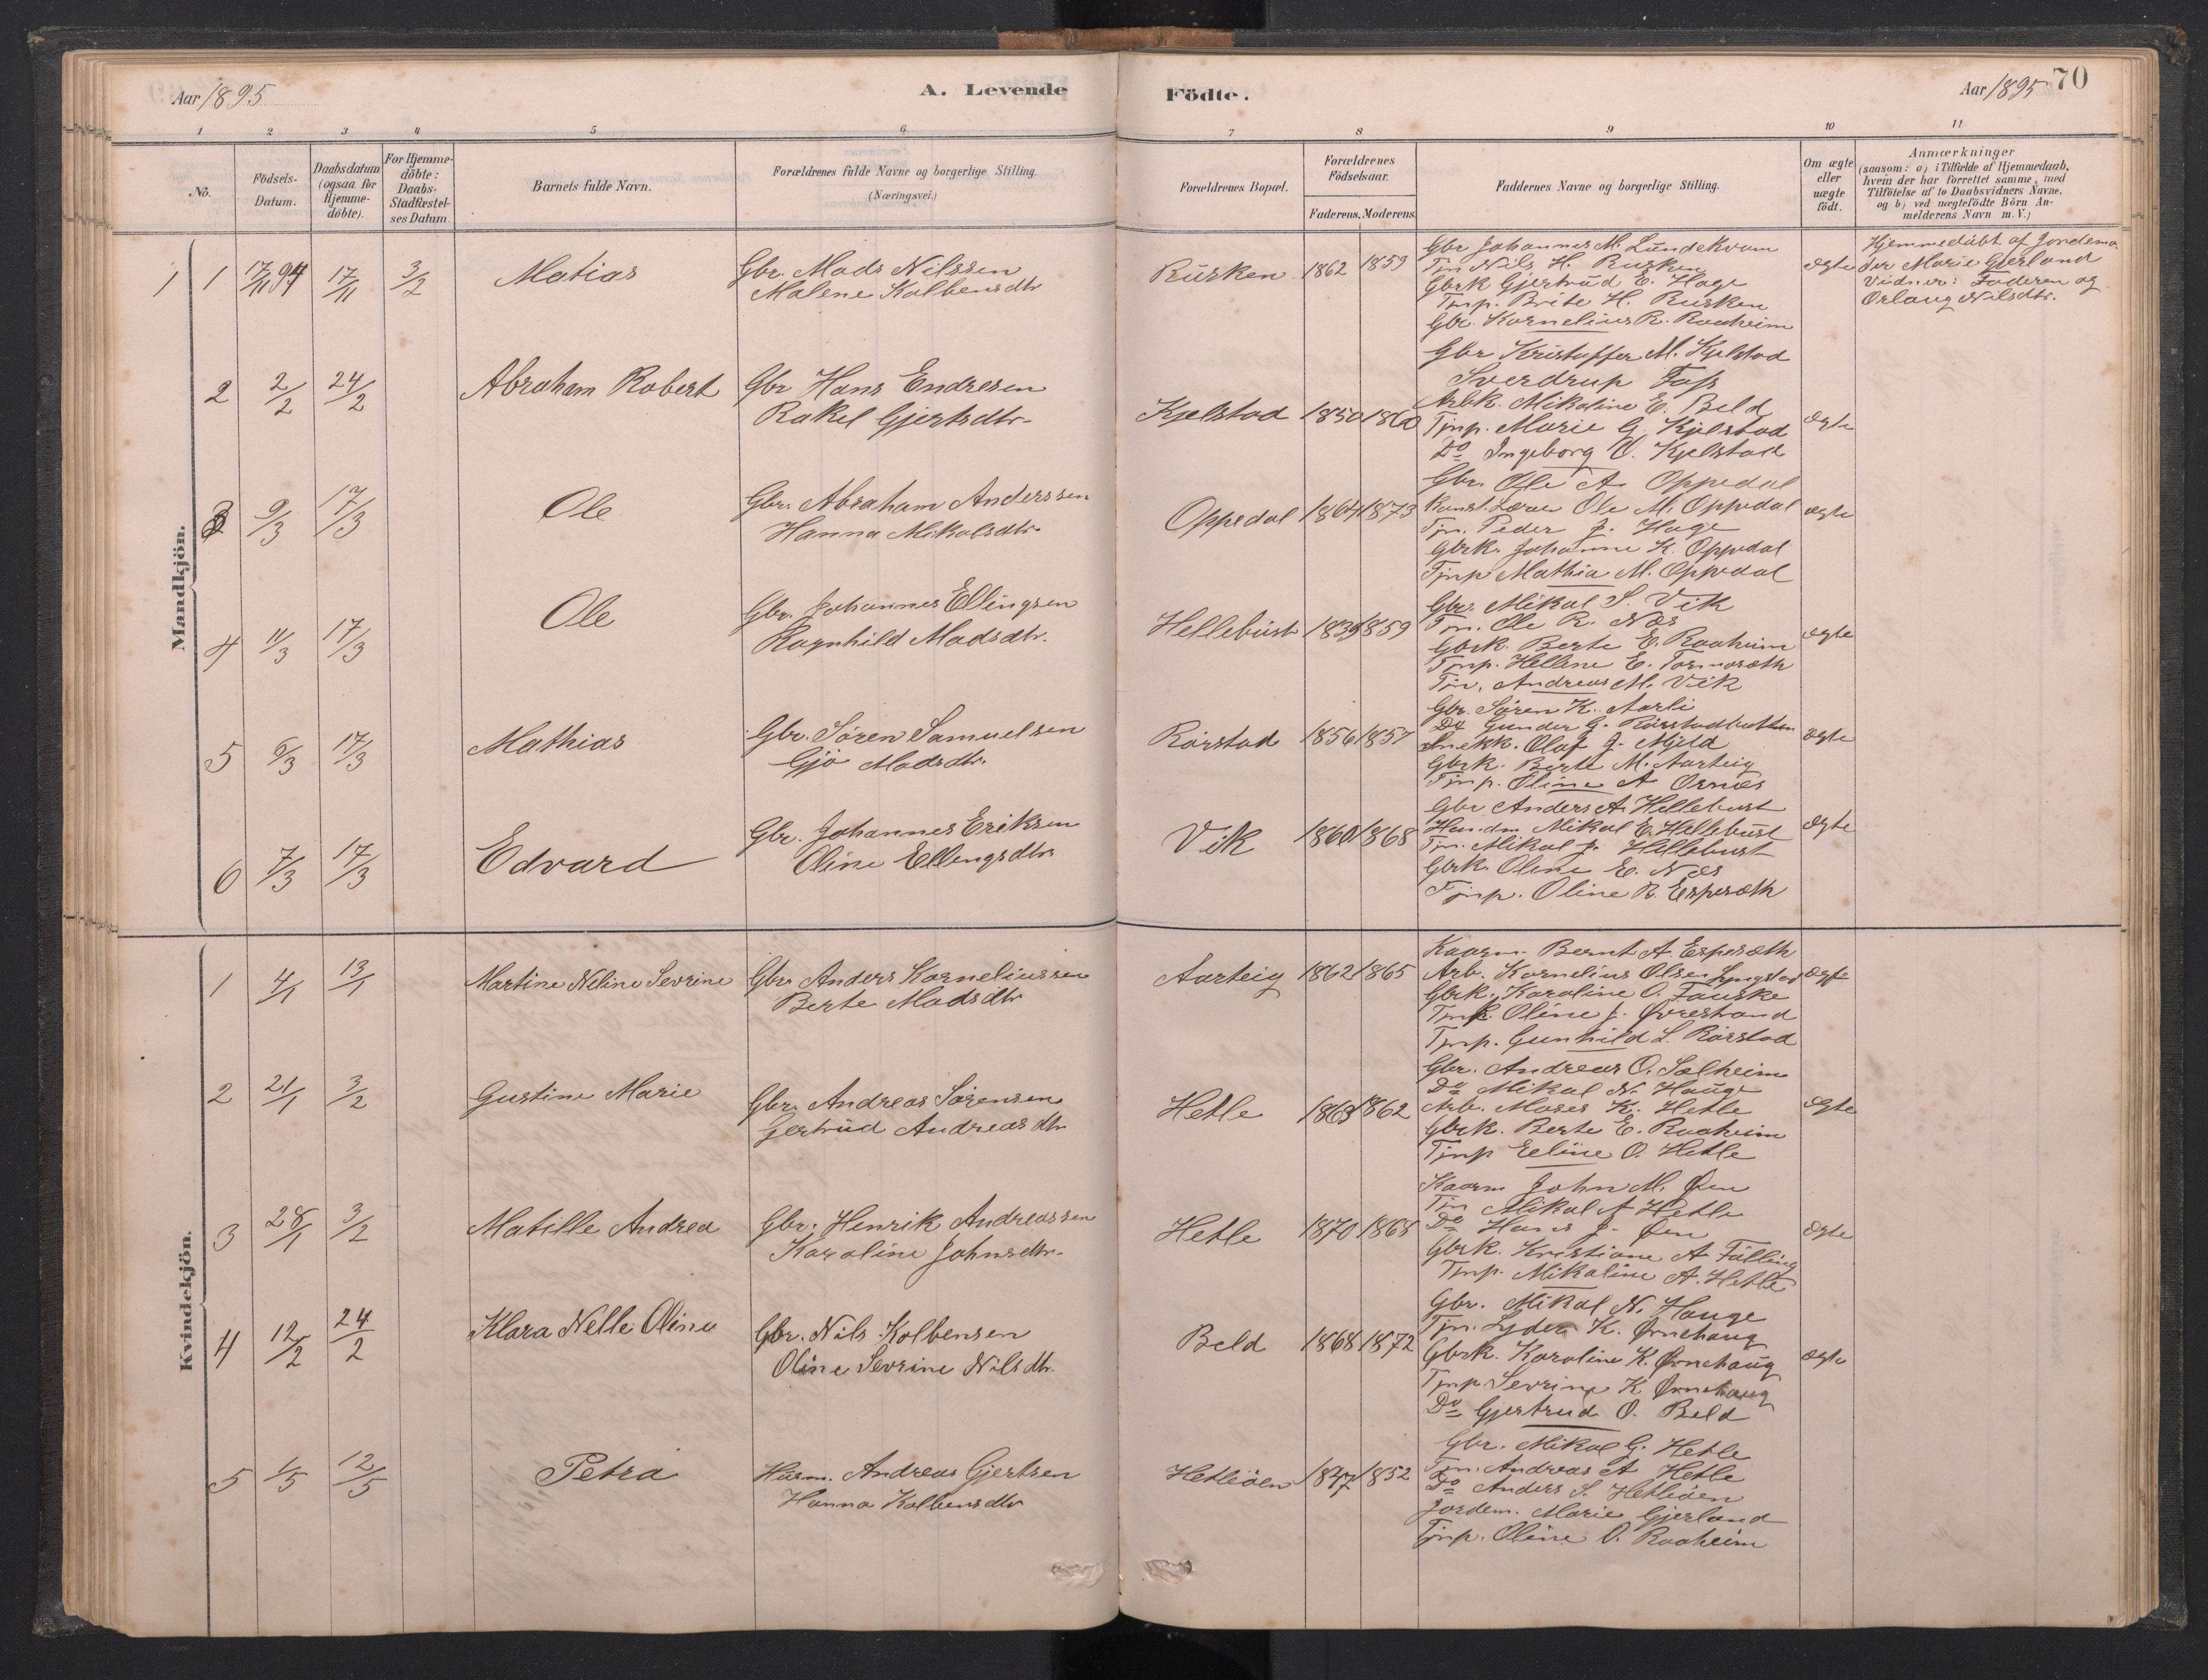 Aar 1895
A. Levende
Födte.
Aar 1895 70
1 2 3 4 5 6 7 8 9 10 11
No.
Födsels-
Datum.
Daabsdatum
(ogsaa for
Hjemme-
döbte).
For Hjemme-
döbte:
Daabs-
Stadfæstel-
ses Datum.
Barnets fulde Navn.
Forældrenes fulde Navne og borgerlige Stilling.
(Næringsvei.)
Forældrenes Bopæl.
Forældrenes
Födselsaar.
Faderens. Moderens.
Faddernes Navne og borgerlige Stilling.
Om ægte
eller
uægte
födt.
Anmærkninger
(saasom: a) i Tilfælde af Hjemmedaab,
hvem der har forrettet samme, med
Tilföielse af to Daabsvidners Navne.
og b) ved uægtefödte Börn An-
melderens Navn m. V.)
Mandkjön.
1 1 17/11 94 17/11 3/2 Matias
Gbr. Mads Nilssen
Malene Kolbensdtr
Rusken 1862 1859
Gbr Johannes M. Lundekvam
Tjn Nils H. Rusken
Gbrk Gjertrud E. Hage
Tjnp. Brite H. Rusken
Gbr. Kornelius R. Raaheim
ægte
Hjemmedöbt af Jordemo-
der Marie Gjerland
Vidner: Faderen og
Orlaug Nilsdtr.
2 2/2 24/2 Abraham Robert
Gbr Hans Endresen
Rakel Gjertsdtr.
Kjelstad 1850 1860
Gbr Kristoffer M. Kjelstad
Sverdrup Foss
Arbk. Mikoline E. Beld
Tjnp. Marie G. Kjelstad
Do Ingeborg O. Kjelstad
ægte
3 9/3 17/3 Ole
Gbr. Abraham Anderssen
Hanna Mikalsdtr.
Oppedal 1864 1873
Gbr. Ole A. Oppedal
Konst. Lærer Ole M. Oppedal
Tjn. Peder J. Hage
Gbrk. Johanne K. Oppedal
Tjnp Mathia M. Oppedal
ægte
4 11/3 17/3 Ole
Gbr. Johannes Ellingsen
Ragnhild Madsdtr.
Hellebust 1839 1859
Gbr. Mikal S. Vik
Tjn. Ole R. Næs
Gbrk. Berte E. Raaheim
Tjnp. Hellene E. Tormoræth
Tjn. Andreas M. Vik
ægte
5 6/3 17/3 Mathias
Gbr. Sören Samuelsen
Gjö Madsdtr.
Rörstad 1856 1857
Gbr. Sören K. Aarli
Do Gunder G. Rörstadbotten
Snekk. Olaf J. Mjeld
Gbrk. Berte M. Aarteig
Tjnp. Oline A Ornæs
ægte
6 7/3 17/3 Edvard
Gbr. Johannes Eriksen
Oline Ellingsdtr
Vik 1860 1868
Gbr Anders A. Hellebust
Handm Mikal E. Hellebust
Tjn. Mikal J. Hellebust
Gbrk. Oline E. Næs
Tjnp. Oline R. Esperæth
ægte
Kvindekjön.
1 4/1 13/1 Martine Neline Sevrine
Gbr Anders Korneliussen
Berte Madsdtr
Aarteig 1862 1865
Kaarm. Bernt A. Esperæth
Arb. Kornelius Olsen Lyngstad
Gbrk. Karoline O. Fauske
Tjnp. Oline J. Øvrestrand
Tjnp. Gunhild L. Rörstad
ægte
2 21/1 3/2 Gustine Marie
Gbr. Andreas Sörensen
Gertrud Andreasdtr
Hetle 1863 1862
Gbr. Andreas O. Solheim
Do Mikal N. Hauge
Arb. Moses K. Hetle
Gbrk. Berte E. Raaheim
Tjnp Eeline O. Hetle
ægte
3 28/1 3/2 Matille Andrea
Gbr. Henrik Andreassen
Karoline Johnsdtr.
Hetle 1870 1868
Kaarm John M. Øen
Tjn Mikal A Hetle
Do Hans J. Øen
Gbrk. Kristiane A Fölling
Tjnp. Mikaline A. Hetle
ægte
4 12/2 24/2 Klara Nelle Oline
Gbr. Nils Kolbensen
Oline Sevrine Nilsdtr.
Beld 1868 1872
Gbr. Mikal N. Hauge
Tjn. Lyder K. Ørnehaug
Gbrk. Karoline K. Ørnehaug
Tjnp Sevrine K Ørnehaug
Do Gjertrud O. Beld
ægte
5 1/5 12/5 Petra
Husm. Andreas Gjertsen
Hanna Kolbensdtr
Hetleöen 1847 1852
Gbr. Mikal G. Hetle
Tjn. Andreas A Hetle
Do Anders S. Hetleöen
Jordem. Marie Gjerland
Tjnp. Oline O. Raaheim